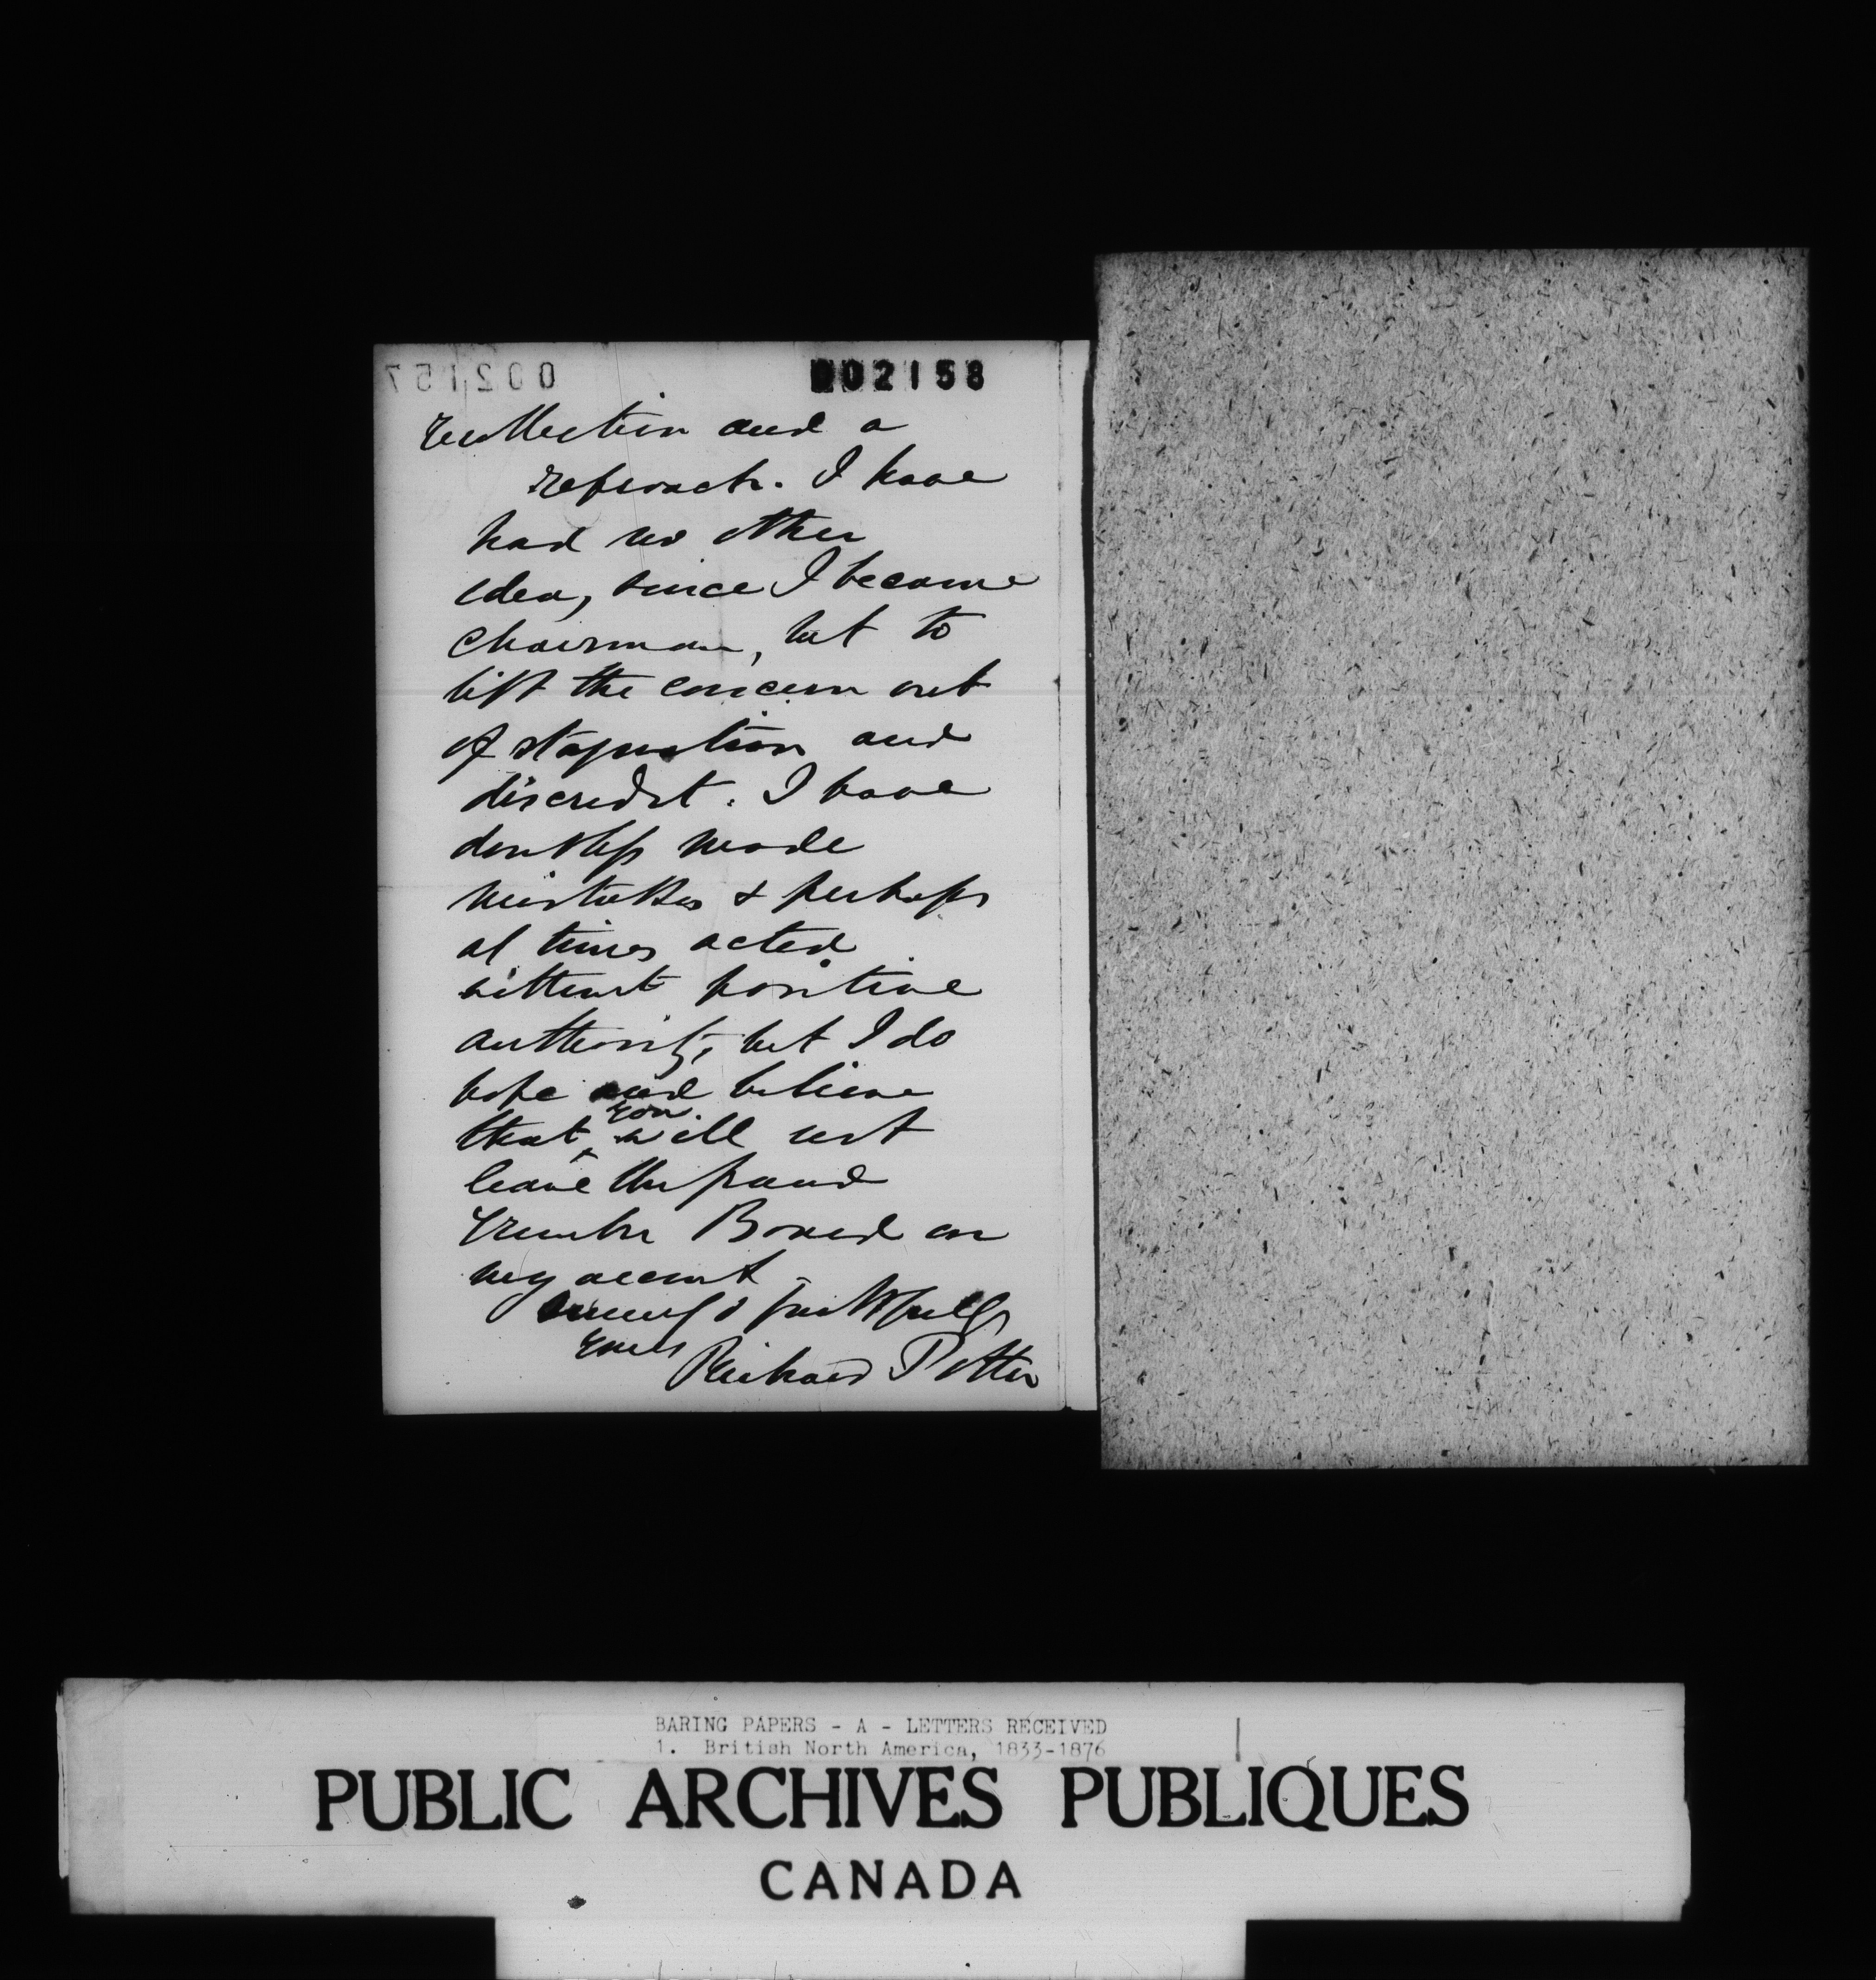 002158
recollection and a
reproach. I have
had no other
idea, since I became
Chairman, but to
lift the concern out
of stagnation and
discredit. I have
doubtless made
mistakes & perhaps
at times acted
without positive
authority, but I do
hope and believe
that you will not
leave the Grand
Trunk Board on
my account
faithfully
yours
Richard Potter
BARING PAPERS - A - LETTERS RECEIVED
1. British North America, 1833-1876
PUBLIC ARCHIVES PUBLIQUES
CANADA